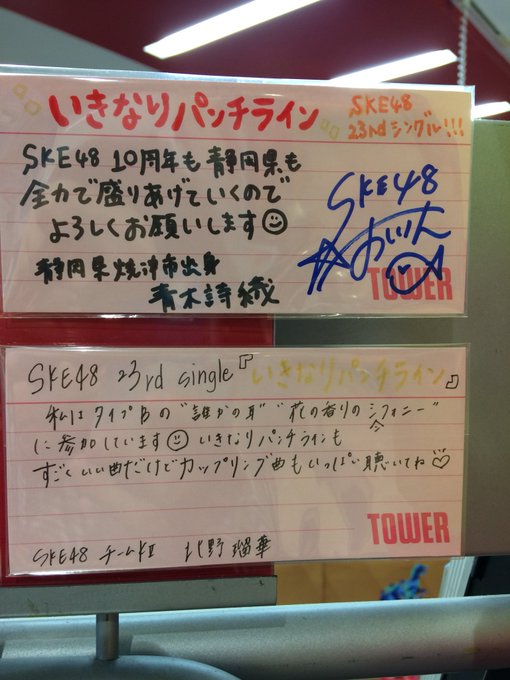 いきなりパンチライン
SKE48
23rdシングル!!!
SKE48 10周年も静岡県も
全力で盛りあげていくので
よろしくお願いします
静岡県焼津市出身
青木詩織
SKE48
おいりん
TOWER
SKE48 23rd single『いきなりパンチライン』
私はタイプBの"誰かの耳""花の香りのシンフォニー"
に参加しています いきなりパンチラインも
すごくいい曲だけどカップリング曲もいっぱい聴いてね♡
TOWER
SKE48 チームKⅡ 北野瑠華